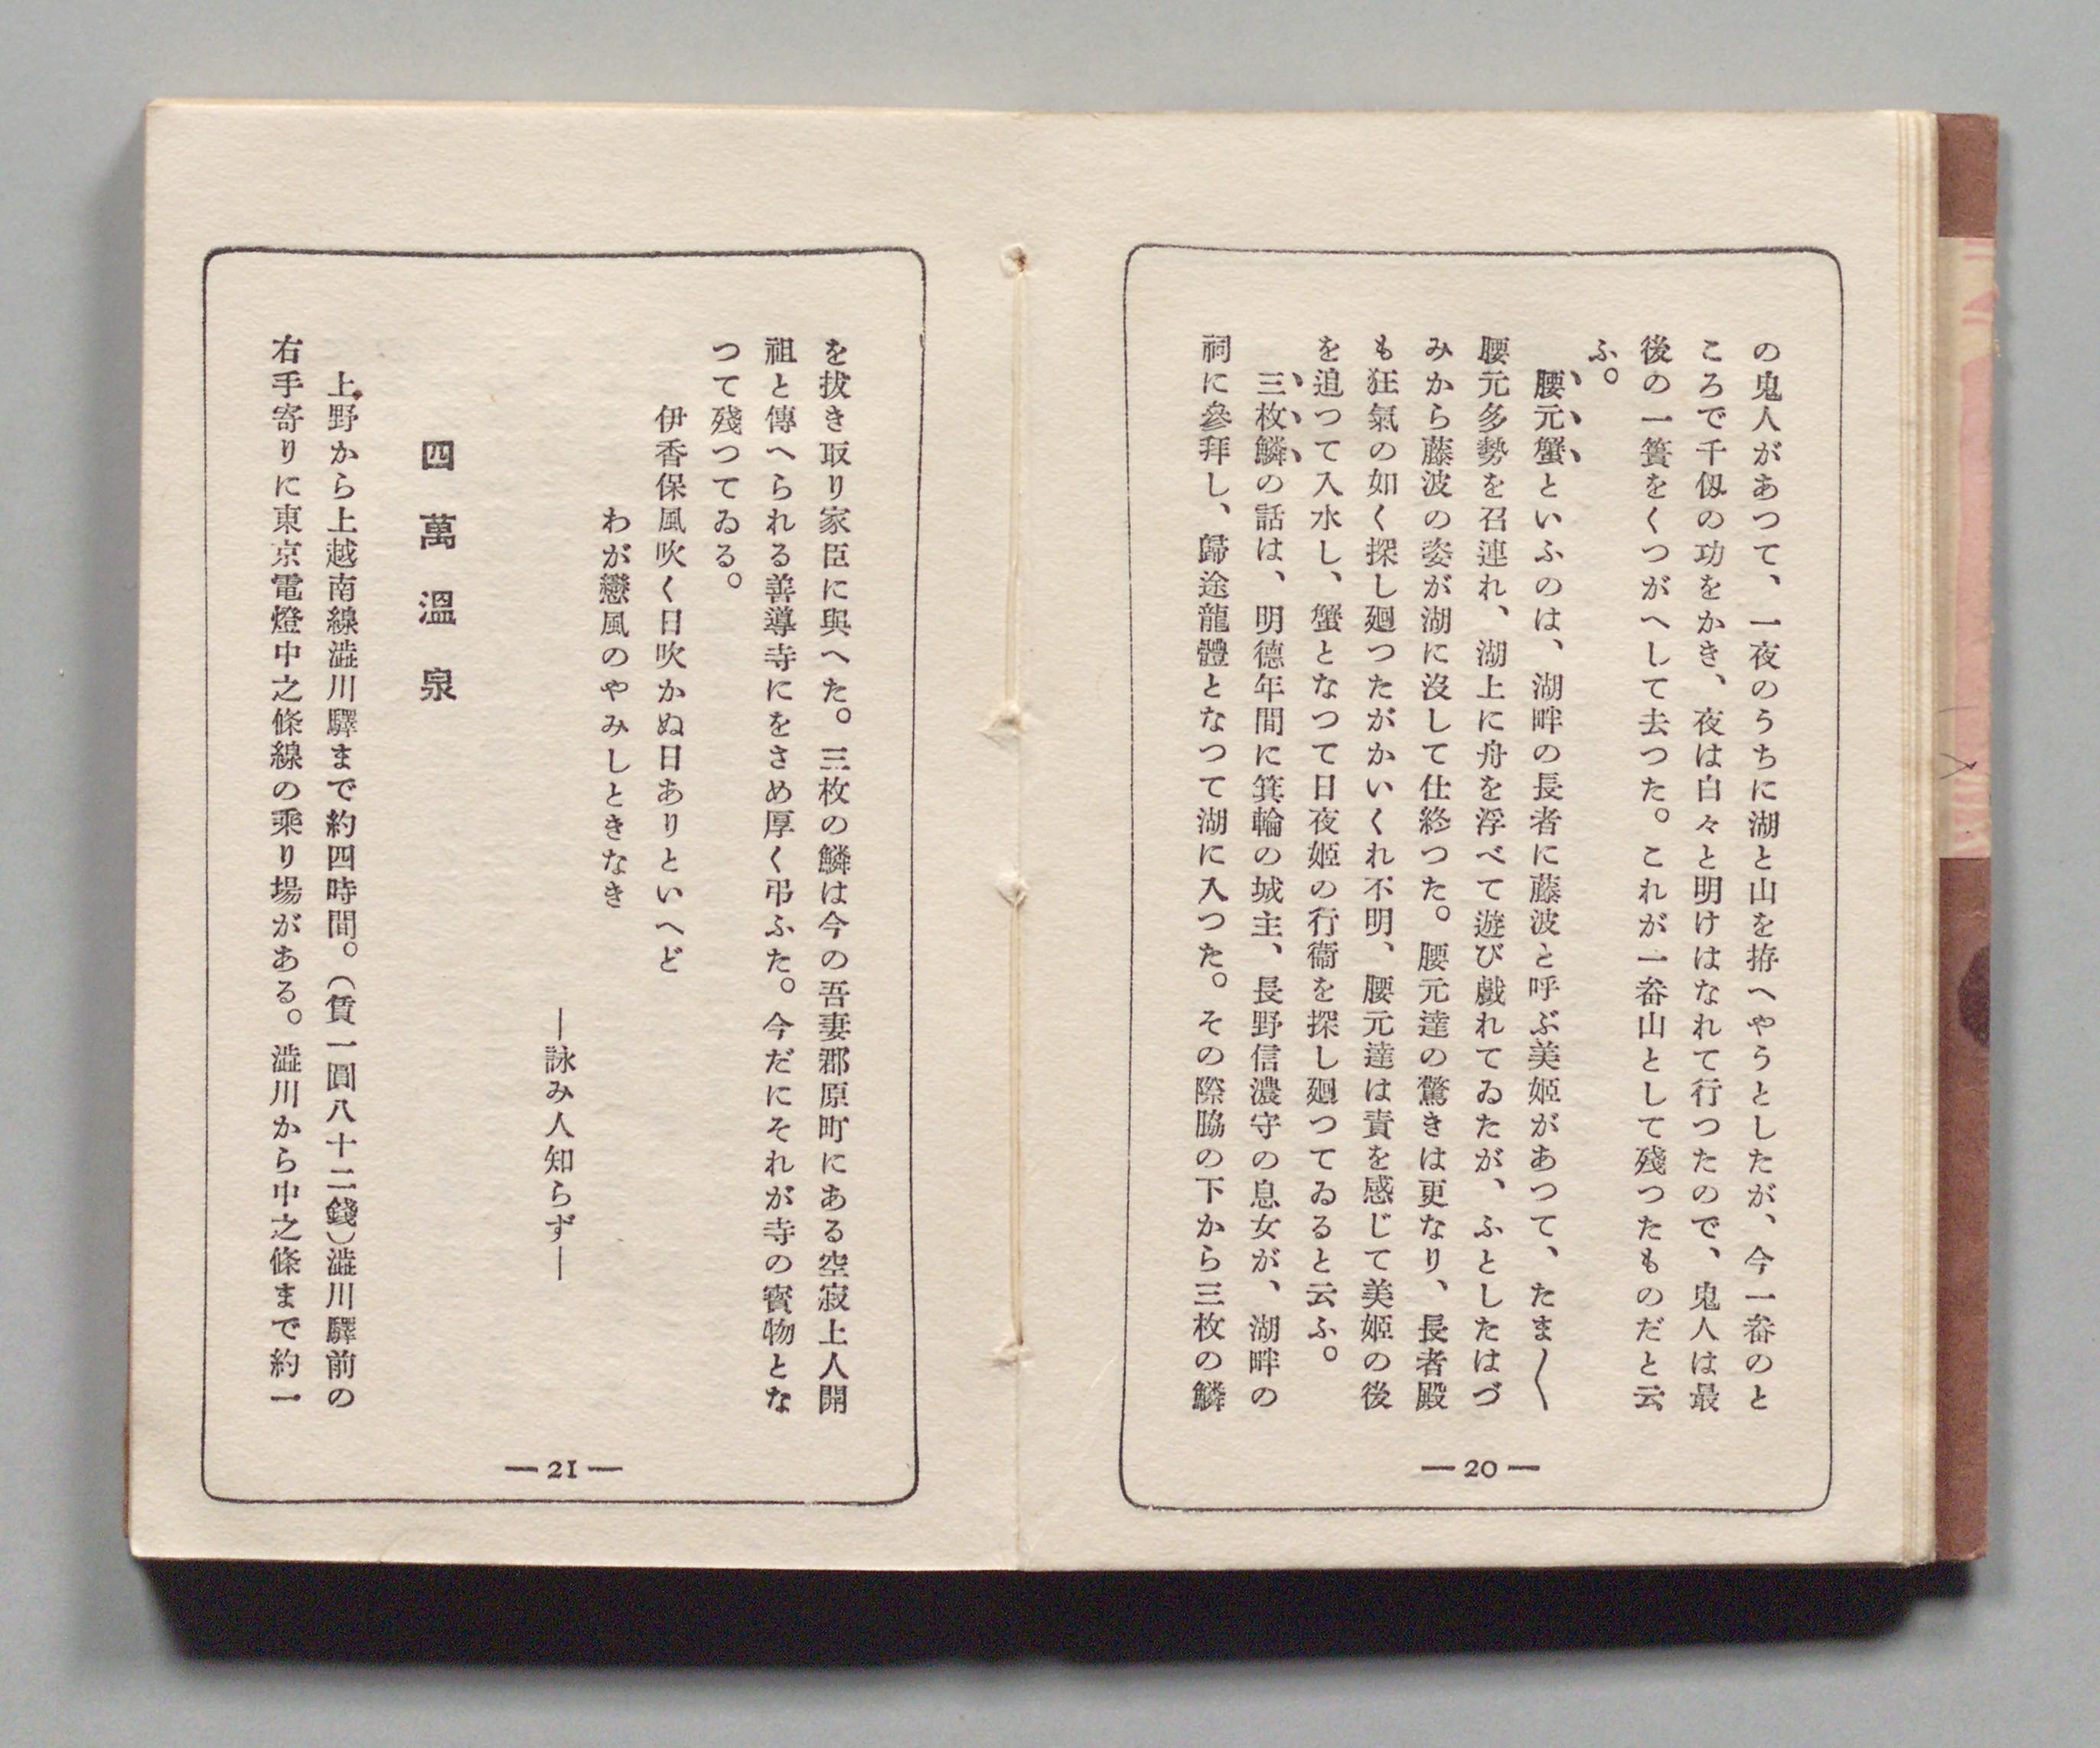 の鬼人があつて、一夜のうちに湖と山を拵へやうとしたが、今一畚のと
ころで千仭の功をかき、夜は白々と明けはなれて行つたので、鬼人は最
後の一簣をくつがへして去つた。これが一畚山として殘つたものだと云
ふ。
腰元蟹といふのは、湖畔の長者に藤波と呼ぶ美姫があつて、たま〱
腰元多勢を召連れ、湖上に舟を浮べて遊び戯れてゐたが、ふとしたはづ
みから藤波の姿が湖に沒して仕終つた。腰元達の驚きは更なり、長者殿
も狂氣の如く探し廻つたがかいくれ不明、腰元達は責を感じて美姫の後
を追つて入水し、蟹となつて日夜姫の行衞を探し廻つてゐると云ふ。
三枚鱗の話は、明德年間に箕輪の城主、長野信濃守の息女が、湖畔の
祠に參拜し、歸途龍體となつて湖に入つた。その際脇の下から三枚の鱗
—20—
を拔き取り家臣に與へた。三枚の鱗は今の吾妻郡原町にある空寂上人開
祖と傳へられる善導寺にをさめ厚く弔ふた。今だにそれが寺の寳物とな
つて殘つてゐる。
伊香保風吹く日吹かぬ日ありといへど
わが戀風のやみしときなき
—詠み人知らず—
四萬溫泉
上野から上越南線澁川驛まで約四時間。(賃一圓八十二錢)澁川驛前の
右手寄りに東京電燈中之條線の乘り場がある。澁川から中之條まで約一
—21—